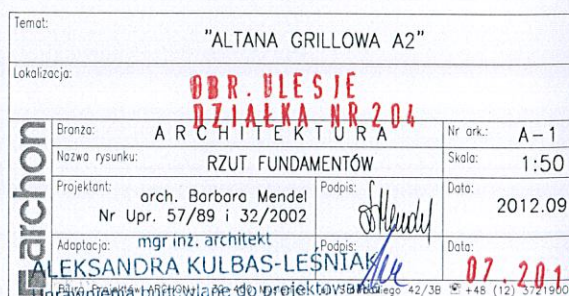 Temat:
"ALTANA GRILLOWA A2"
Lokalizacja:
OBR. ULESIE
DZIAŁKA NR 204
archon
Branża: ARCHITEKTURA
Nr ark.: A-1
Nazwa rysunku: RZUT FUNDAMENTÓW
Skala: 1:50
Projektant: arch. Barbara Mendel
Nr Upr. 57/89 i 32/2002
Podpis:
Data: 2012.09
Adaptacja: mgr inż. architekt
ALEKSANDRA KULBAS-LEŚNIAK
Podpis:
Data: 07.201
42/3B +48 (12) 3721900